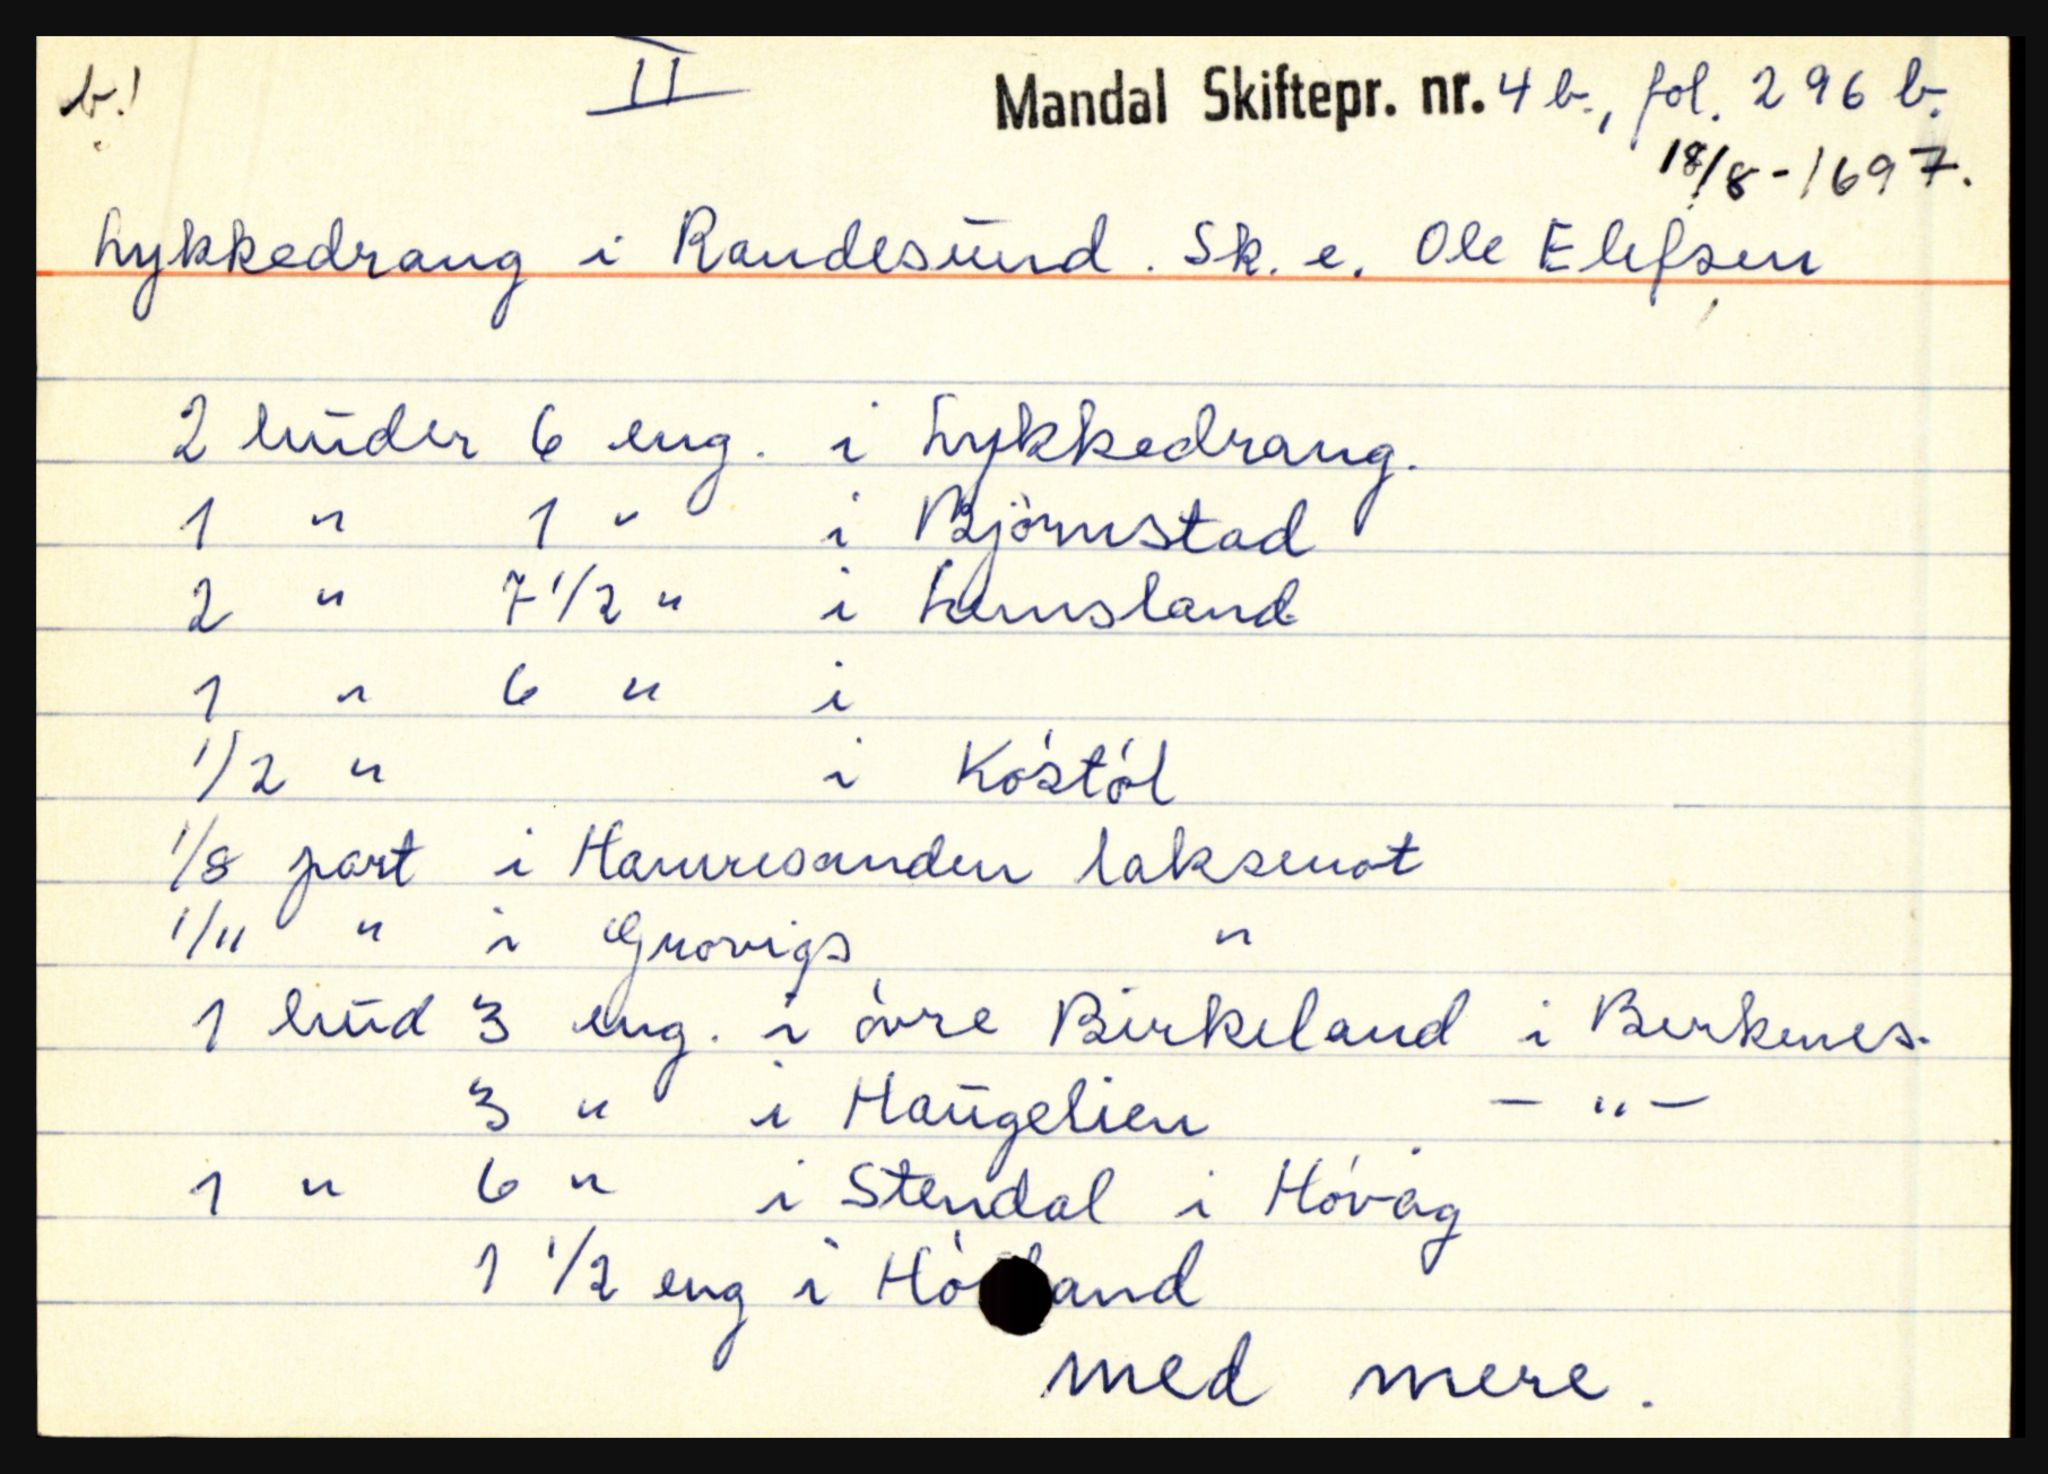 b.! II Mandal Skiftepr. nr. 4 b., fol. 296 b.
18/8-1697.
Lykkedrang i Randesund. Sk. e. Ole Elefsen
2 huder 6 eng. i Lykkedrang.
1 " 1 " i Björnstad
2 " 7 1/2 " i Lunsland
1 " 6 " i
1/2 " i Kóstól
1/8 part i Hamresanden laksenot
1/11 " i Grovigs "
1 hud 3 eng. i óvre Birkeland i Berkenes.
3 " i Haugelien - " -
1 " 6 " i Stendal i Hóvåg
1 1/2 eng i
med mere.